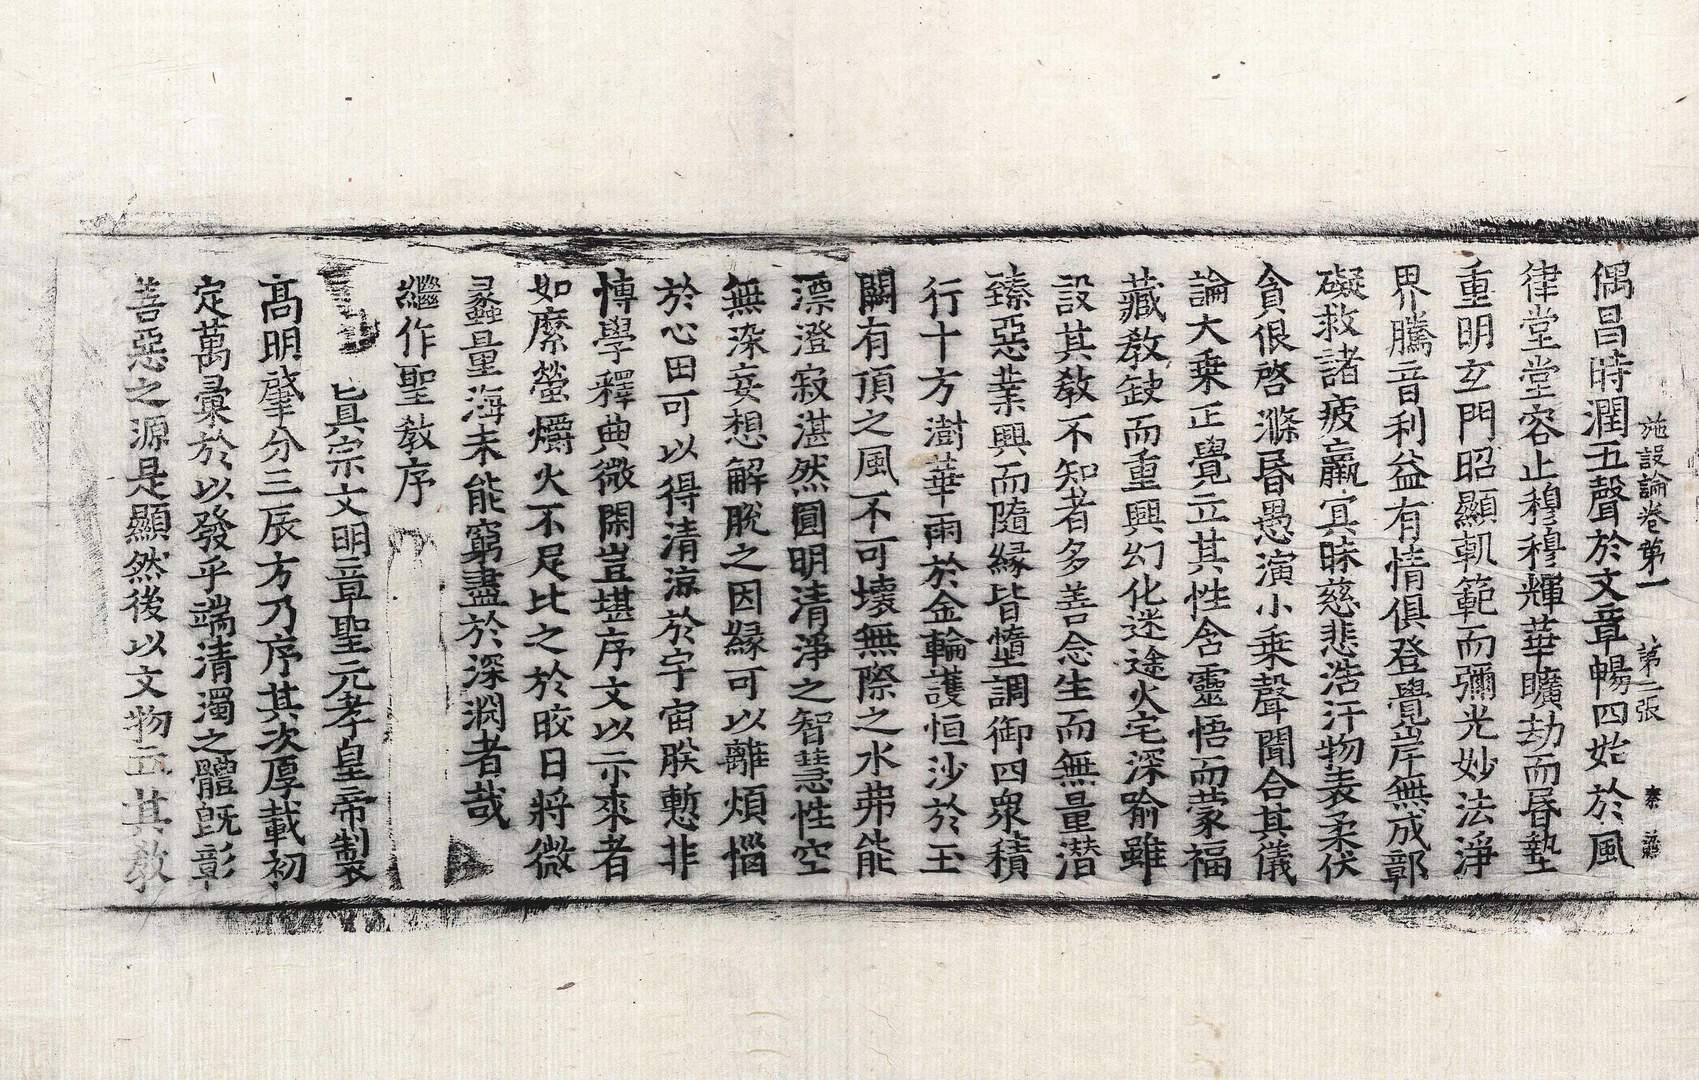 施設論卷第一 第二張 泰
偶昌時潤五聲於文章暢四始於風
律堂堂容止穆穆輝華曠劫而昏墊
重明玄門昭顯軌範而彌光妙法淨
界騰音利益有情俱登覺岸無成鄣
礙救諸疲羸冥昧慈悲浩汗物表柔伏
貪佷啓滌昏愚演小乘聲聞合其儀
論大乘正覺立其性含靈悟而蒙福
藏教缺而重興幻化迷途火宅深喻雖
設其教不知者多善念生而無量潜
臻惡業興而隨緣皆墮調御四衆積
行十方澍華雨於金輪護恒沙於玉
闕有頂之風不可壞無際之水弗能
漂澄寂湛然圓明清淨之智慧性空
無染妄想解脫之因緣可以離煩惱
於心田可以得清涼於宇宙朕慙非
博學釋典微閑豈堪序文以示來者
如縻螢爝火不足比之於皎日將微
蠡量海未能窮盡於深淵者哉
繼作聖教序
眞宗文明章聖元孝皇帝制
高明肇分三辰方乃序其次厚載初
定萬彙於以發乎端清濁之體旣彰
善惡之源是顯然後以文物立其教